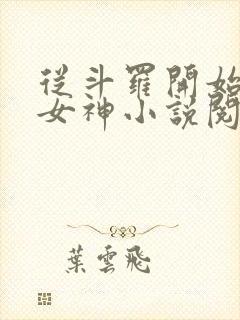 從斗羅開始
女神小説閱
葉雲飛